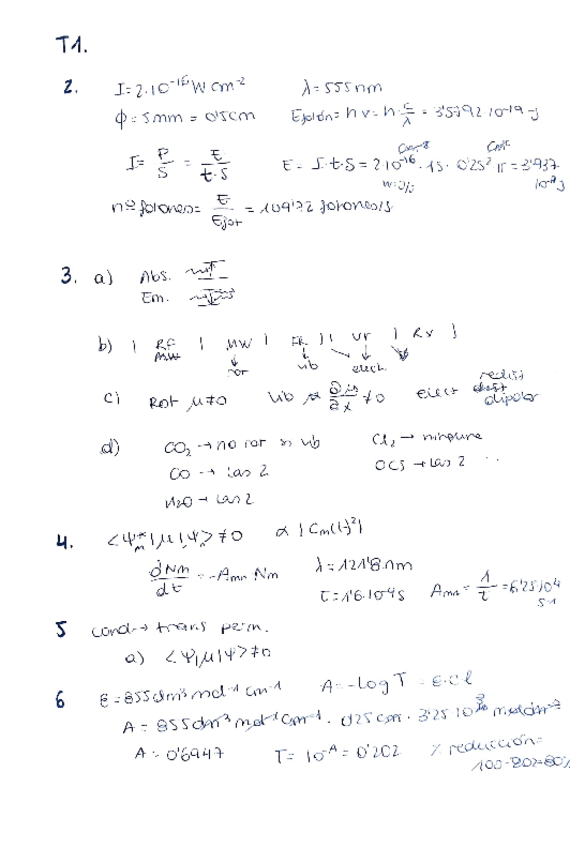 T1.
2. I=2·10⁻¹⁶ W cm⁻² λ=555nm
Φ=5mm = 0'5cm Efotón= hν=h·c/λ = 3'5792 10⁻¹⁹ J
I= P/S = E/t·S E= I·t·S = 2·10⁻¹⁶ · 1s · 0'25² π = 3'937
W=J/s 10⁻¹⁷ J
nº fotones= E/Efot = 109'72 fotones/s
3. a) Abs.
Em.
b) | RF | MW | IR | | UV | RX |
rot vib elect.
c) Rot μ≠0 vib ∂μ/∂x ≠0 elect redist
dipolar
d) CO₂ → no rot si vib Cl₂ → ninguna
CO → Las 2 OCS → Las 2
H₂O → Las 2
4. <Ψm*|μ|Ψn> ≠0 α |Cm(t)²|
dNm/dt = -Amn Nm λ=121'8nm
τ=1'6·10⁻⁴s Amn= 1/τ =6'25 10⁴
s-1
5 cond→ trans perm.
a) <Ψ|μ|Ψ> ≠0
6 ε=855dm³ mol⁻¹ cm⁻¹ A=-Log T = ε·c·l
A= 855dm³ mol⁻¹ cm⁻¹ · 0'25 cm · 3'25 10⁻³ mol dm⁻³
A= 0'6947 T= 10⁻ᴬ = 0'202 % reducción=
100-20%=80%